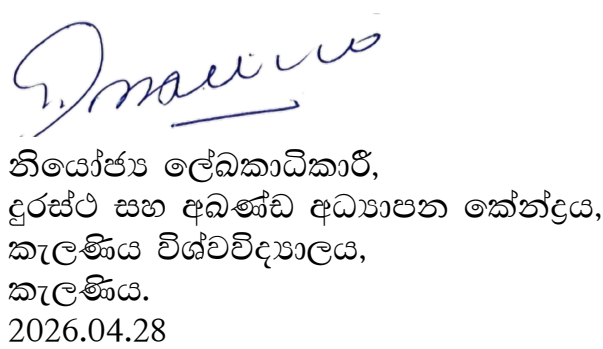 නියෝජ්‍ය ලේඛකාධිකාරී,
දුරස්ථ සහ අඛණ්ඩ අධ්‍යාපන කේන්ද්‍රය,
කැලණිය විශ්වවිද්‍යාලය,
කැලණිය.
2026.04.28